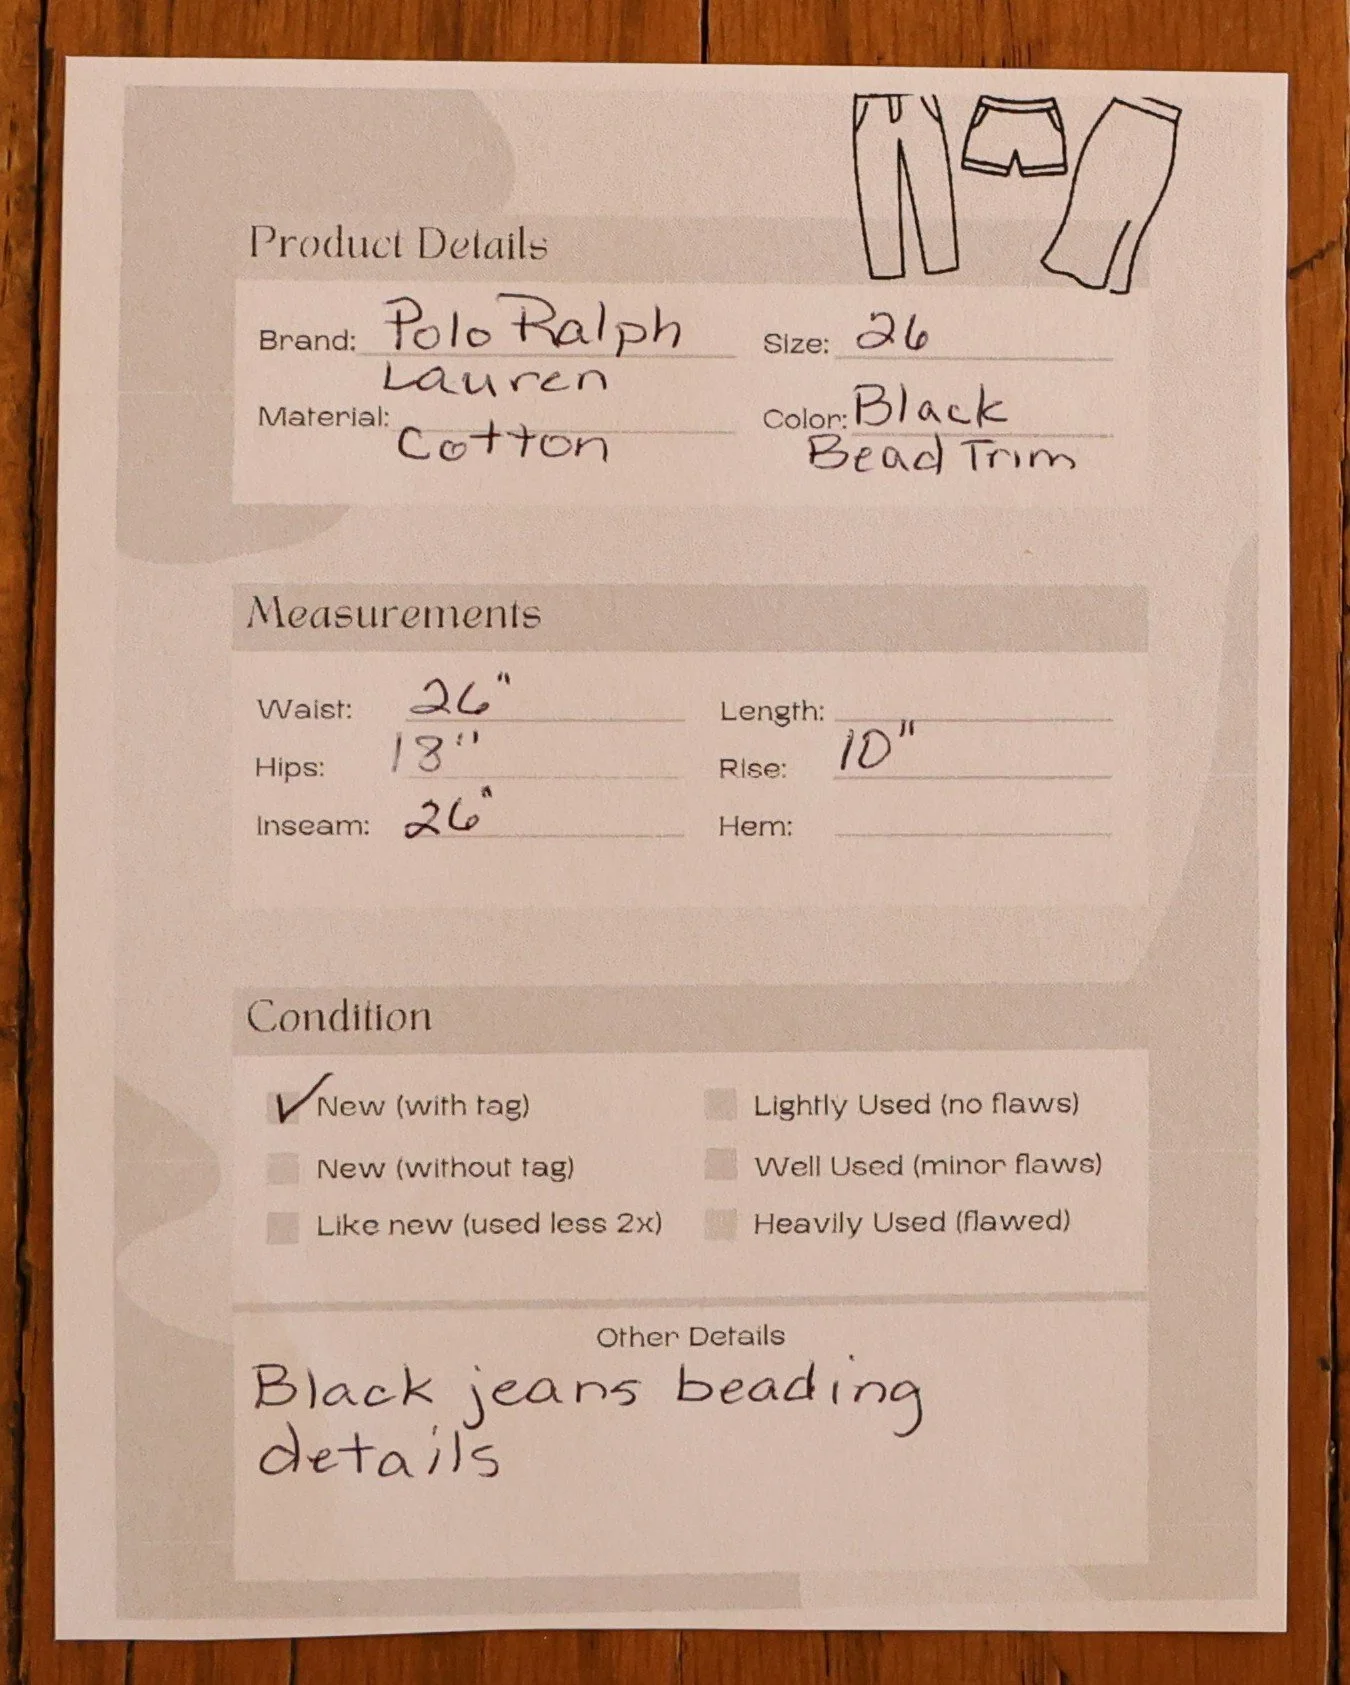 Product Details
Brand: Polo Ralph Size: 26
Lauren
Material: Color: Black
Cotton Bead Trim
Measurements
Waist: 26" Length:
Hips: 18" Rise: 10"
Inseam: 26" Hem:
Condition
✓ New (with tag) Lightly Used (no flaws)
New (without tag) Well Used (minor flaws)
Like new (used less 2x) Heavily Used (flawed)
Other Details
Black jeans beading
details